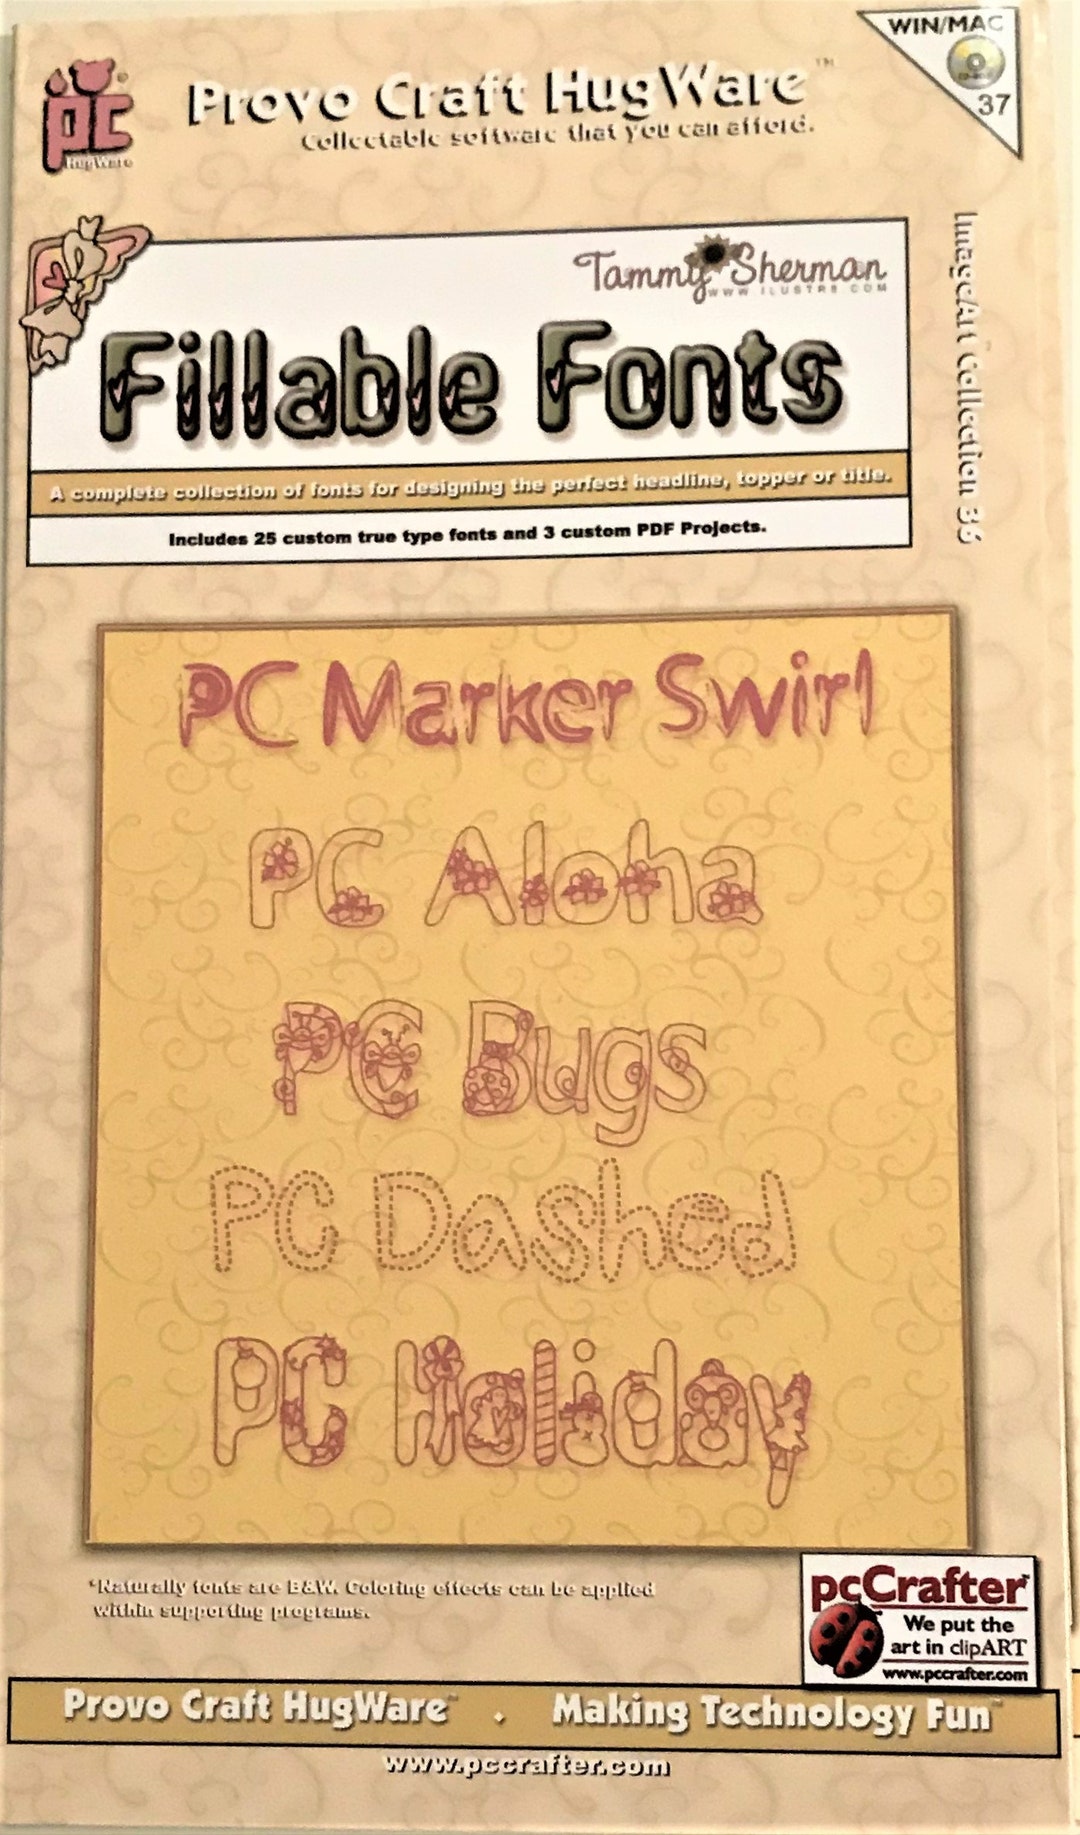 WIN/MAC
37
pc
HugWare
Provo Craft HugWare™
Collectable software that you can afford.
Image/Art Collection 36
Tammy Sherman
WWW.ILUSTR8.COM
Fillable Fonts
A complete collection of fonts for designing the perfect headline, topper or title.
Includes 25 custom true type fonts and 3 custom PDF Projects.
PC Marker Swirl
PC Aloha
PC Bugs
PC Dashed
PC Holiday
*Naturally fonts are B&W. Coloring effects can be applied
within supporting programs.
pcCrafter™
We put the
art in clipART
www.pccrafter.com
Provo Craft HugWare™ . Making Technology Fun™
www.pccrafter.com